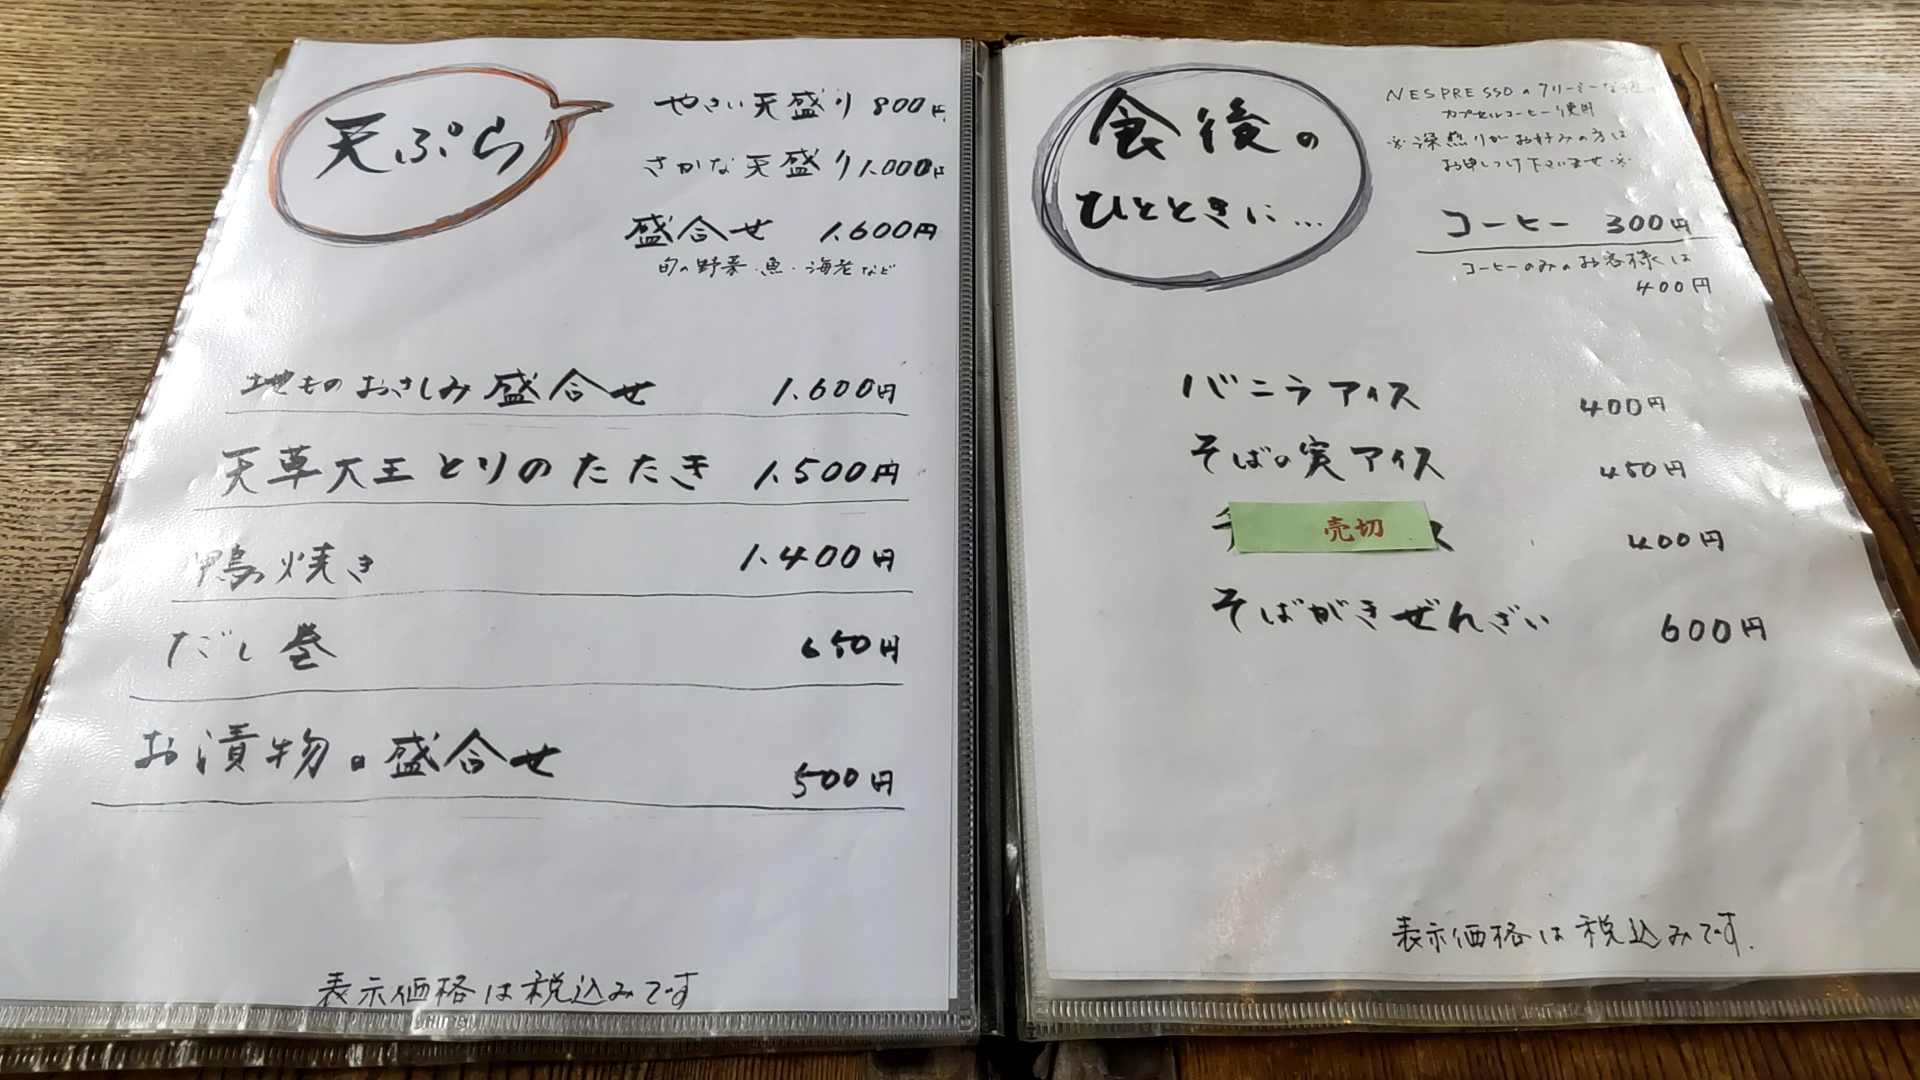 天ぷら
やさい天盛り 800円
さかな天盛り 1.000円
盛合せ 1.600円
旬の野菜・魚・海老など
地ものおさしみ盛合せ 1.600円
天草大王とりのたたき 1.500円
鴨焼き 1.400円
だし巻 650円
お漬物の盛合せ 500円
表示価格は税込みです
食後の
ひとときに...
NESPRESSOのクリーミーな
カプセルコーヒー使用
※深煎りがお好みの方は
お申しつけ下さいませ※
コーヒー 300円
コーヒーのみのお客様は
400円
バニラアイス 400円
そばの実アイス 450円
売切 400円
そばがきぜんざい 600円
表示価格は税込みです.